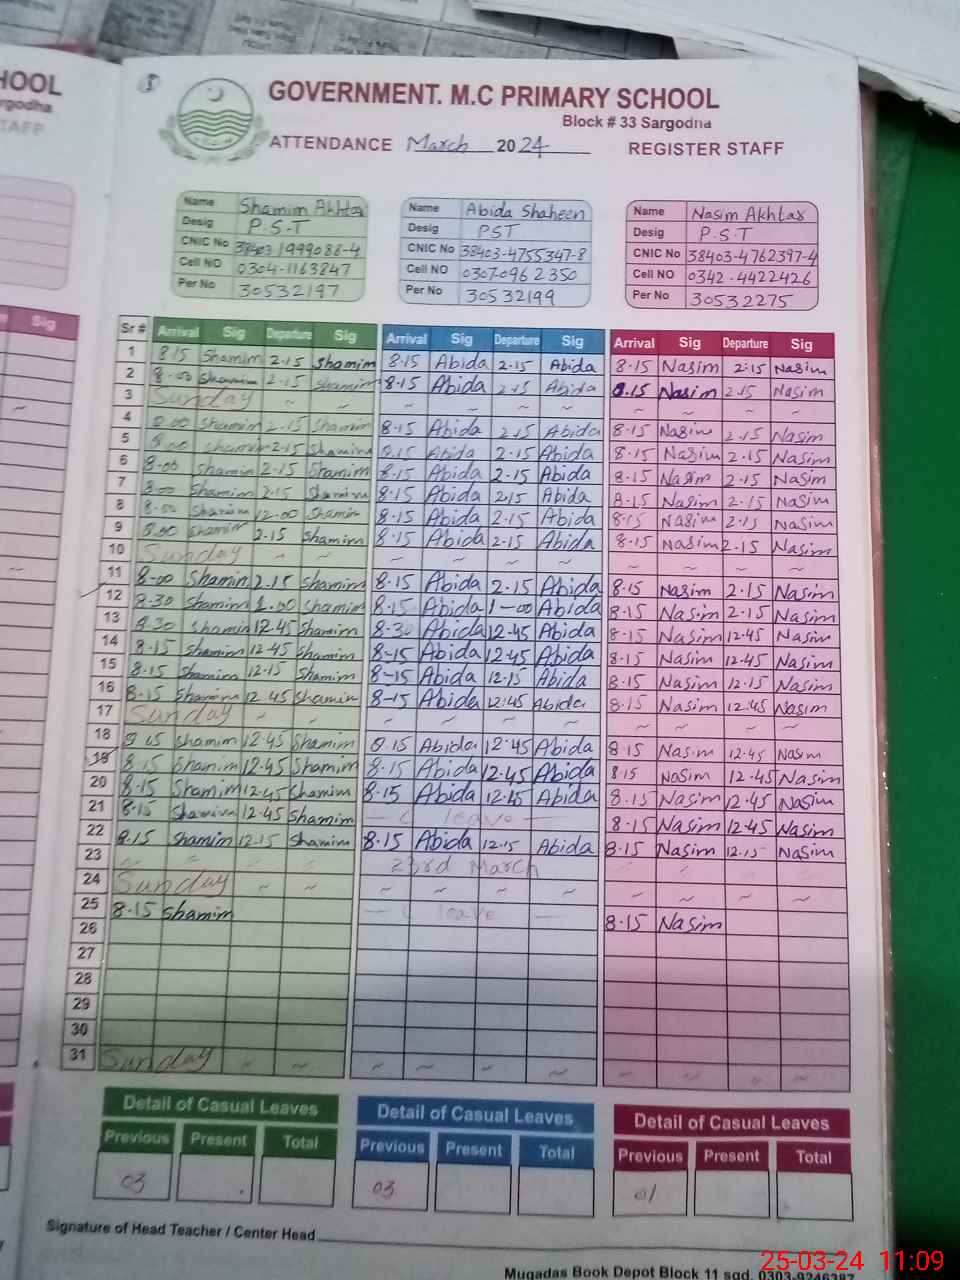 HOOL
rgodha
TAFF
Sig
8
GOVERNMENT. M.C PRIMARY SCHOOL
Block # 33 Sargodha
ATTENDANCE March 2024 REGISTER STAFF
Name Shamim Akhtar
Desig P.S.T
CNIC No 38403-1999088-4
Cell NO 0304-1163847
Per No 30532197
Name Abida Shaheen
Desig PST
CNIC No 38403-4755347-8
Cell NO 0307-0962350
Per No 30532199
Name Nasim Akhtar
Desig P.S.T
CNIC No 38403-4762397-4
Cell NO 0342-4422426
Per No 30532275
Sr # Arrival Sig Departure Sig Arrival Sig Departure Sig Arrival Sig Departure Sig
1 8.15 Shamim 2.15 Shamim 8.15 Abida 2.15 Abida 8.15 Nasim 2.15 Nasim
2 8-00 Shamim 2.15 Shamim 8.15 Abida 2.15 Abida 8.15 Nasim 2.15 Nasim
3 Sunday ~ ~ ~ ~ ~ ~ ~ ~ ~ ~
4 8.00 Shamim 2.15 Shamim 8.15 Abida 2.15 Abida 8.15 Nasim 2.15 Nasim
5 8.00 Shamim 2.15 Shamim 8.15 Abida 2.15 Abida 8.15 Nasim 2.15 Nasim
6 8-00 Shamim 2.15 Shamim 8.15 Abida 2.15 Abida 8.15 Nasim 2.15 Nasim
7 8.00 Shamim 2.15 Shamim 8.15 Abida 2.15 Abida 8.15 Nasim 2.15 Nasim
8 8-00 Shamim 12.00 Shamim 8.15 Abida 2.15 Abida 8.15 Nasim 2.15 Nasim
9 8.00 Shamim 2.15 Shamim 8.15 Abida 2.15 Abida 8.15 Nasim 2.15 Nasim
10 Sunday ~ ~ ~ ~ ~ ~ ~ ~ ~ ~
11 8-00 Shamim 2.15 Shamim 8.15 Abida 2.15 Abida 8.15 Nasim 2.15 Nasim
12 8.30 Shamim 1.00 Shamim 8.15 Abida 1-00 Abida 8.15 Nasim 2.15 Nasim
13 8.30 Shamim 12.45 Shamim 8.30 Abida 12.45 Abida 8.15 Nasim 12.45 Nasim
14 8.15 Shamim 12.45 Shamim 8-15 Abida 12.45 Abida 8.15 Nasim 12.45 Nasim
15 8.15 Shamim 12.15 Shamim 8-15 Abida 12.15 Abida 8.15 Nasim 12.15 Nasim
16 8.15 Shamim 12.45 Shamim 8-15 Abida 12.45 Abida 8.15 Nasim 12.45 Nasim
17 Sunday ~ ~ ~ ~ ~ ~ ~ ~ ~ ~
18 8.15 Shamim 12.45 Shamim 8.15 Abida 12.45 Abida 8.15 Nasim 12.45 Nasim
19 8.15 Shamim 12.45 Shamim 8.15 Abida 12.45 Abida 8.15 Nasim 12.45 Nasim
20 8.15 Shamim 12.45 Shamim 8.15 Abida 12.45 Abida 8.15 Nasim 12.45 Nasim
21 8.15 Shamim 12.45 Shamim — C leave — 8.15 Nasim 12.45 Nasim
22 8.15 Shamim 12.15 Shamim 8.15 Abida 12.15 Abida 8.15 Nasim 12.15 Nasim
23 23rd March
24 Sunday ~ ~ ~ ~ ~ ~ ~ ~ ~ ~
25 8.15 Shamim — C leave — 8.15 Nasim
26
27
28
29
30
31 Sunday ~ ~ ~ ~ ~ ~ ~ ~ ~ ~
Detail of Casual Leaves Detail of Casual Leaves Detail of Casual Leaves
Previous Present Total Previous Present Total Previous Present Total
03 03 01
Signature of Head Teacher / Center Head
Muqadas Book Depot Block 11 sgd.
25-03-24 11:09